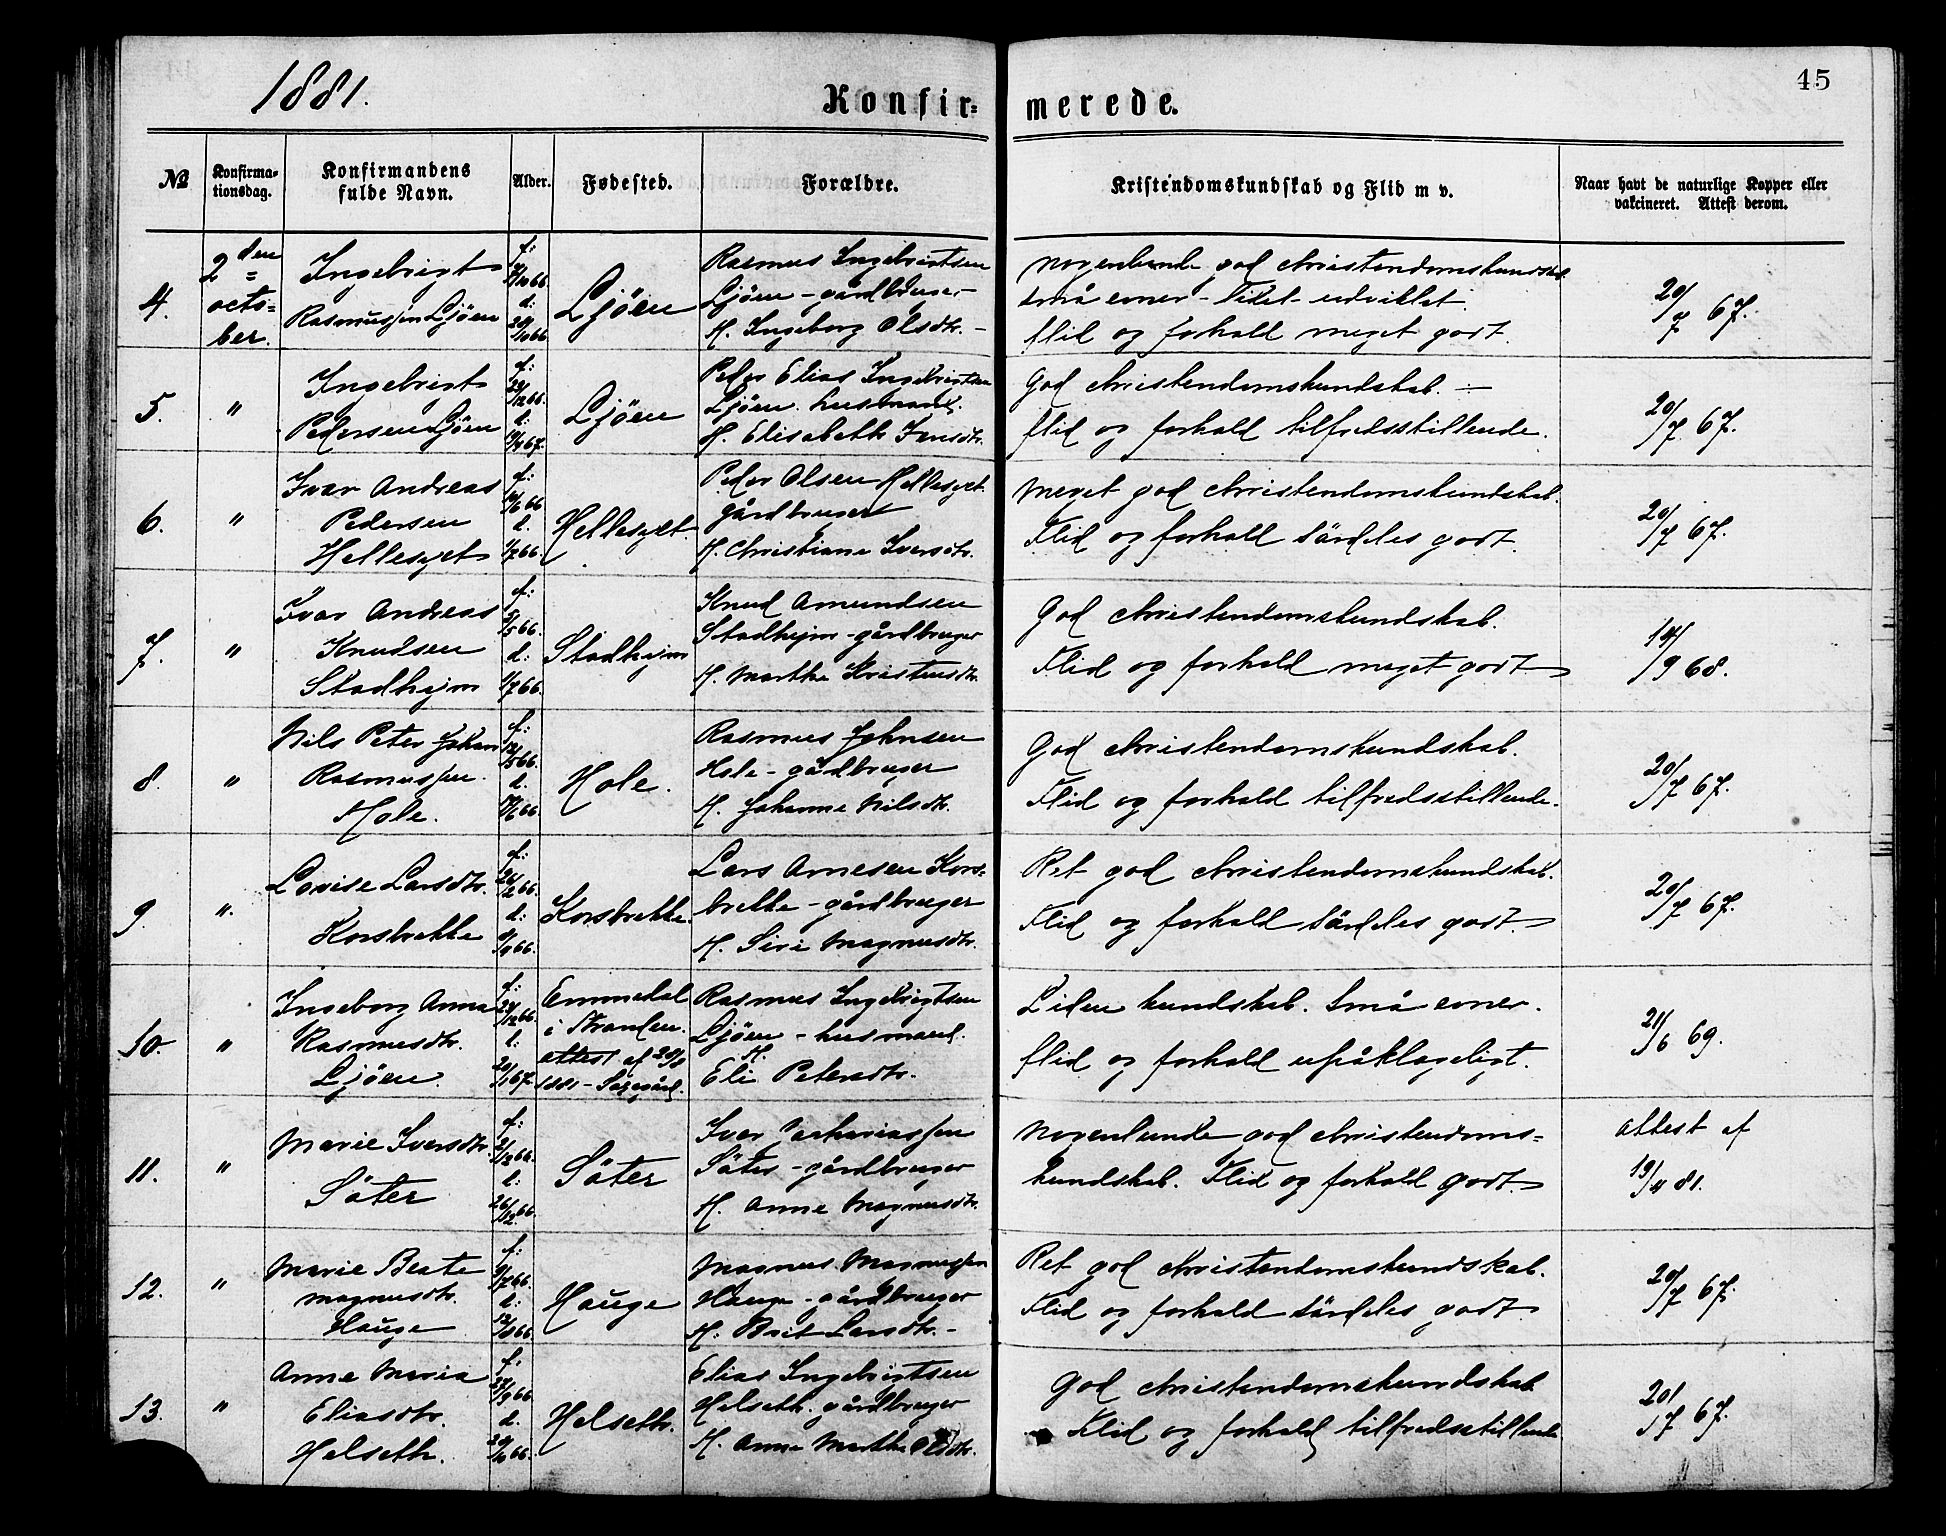 1881.
Konfir=
merede.
45
No
Konfirma-
tionsdag.
Konfirmandens
fulde Navn.
Alder.
Fødested.
Forældre.
Kristendomskundskab og Flid m v.
Naar havt de naturlige Kopper eller
vakcineret. Attest derom.
4.
2den
octo=
ber.
Ingebrigt
Rasmussen Ljöen
f:
d:
Ljöen
Rasmus Ingebrigtsen
Ljöen - gårdbruger
H. Ingeborg Olsdtr. -
Nogenlunde god christendomskundskab.
små evner - lidet udviklet.
flid og forhold meget godt.
20/7 67.
5.
"
Ingebrigt
Pedersen Ljöen
f:
23/12 66.
d:
Ljöen
Peder Elias Ingebrigtsen
Ljöen. husmand.
H. Elisabeth Jensdtr.
God christendomskundskab. -
flid og forhold tilfredsstillende.
20/7 67.
6.
"
Ivar Andreas
Pedersen
Hellesyet
f:
14/6 66
d.
1/7 66.
Hellesyet.
Peder Olsen Hellesyet.
gårdbruger
H. Christiane Iversdtr.
Meget god christendomskundskab.
Flid og forhold særdeles godt.
20/7 67.
7.
"
Ivar Andreas
Knudsen
Stadhejm
f:
5/5 66.
d:
1/7 66.
Stadhejm
Knud Amundsen
Stadhejm - gårdbruger
H. Marthe Kristensdtr.
God christendomskundskab.
Flid og forhold meget godt
14/9 68.
8.
"
Nils Peter Johan
Rasmussen.
Hole.
f:
12/5 66.
d.
Hole.
Rasmus Johnsen
Hole - gårdbruger
H. Johanne Nilsdtr.
God christendomskundskab.
Flid og forhold tilfredsstillende.
20/7 67.
9.
".
Lovise Larsdtr.
Korsbrekke
f:
d:
Korsbrekke.
Lars Arnesen Kors=
brekke - gårdbruger
H. Siri Magnusdtr.
Ret god christendomskundskab.
Flid og forhold særdeles godt. -
20/7 67.
10.
"
Ingeborg Anna
Rasmusdtr.
Ljöen.
f:
d:
Emmedal
i Stranden.
attest af 20/8
1881 -
Rasmus Ingebrigtsen
Ljöen - husmand.
H.
Eli Petersdtr.
Liden kundskab. Små evner.
flid og forhold upåklageligt.
21/6 69.
11.
"
Marie Iversdtr.
Säter
f:
d:
26/12 66.
Säter
Iver Zachariassen
Säter - gårdbruger
H. Anne Magnusdtr.
Nogenlunde god christendoms=
kundskab. Flid og forhold godt.
attest af
19/4 81.
12.
"
Marie Beate
Magnusdtr.
Hauge
f:
9/7 66.
d:
12/8 66
Hauge
Magnus Magnussen
Hauge - gårdbruger
H. Brit Larsdtr. -
Ret god christendomskundskab.
Flid og forhold særdeles godt.
20/7 67.
13.
"
Anne Maria
Eliasdtr.
Helseth.
f.
d.
Helseth.
Elias Ingebrigtsen
Helseth. gårdbruger
H. Anne Marthe Olsdtr.
God christendomskundskab
Flid og forhold tilfredsstillende
20/7 67.